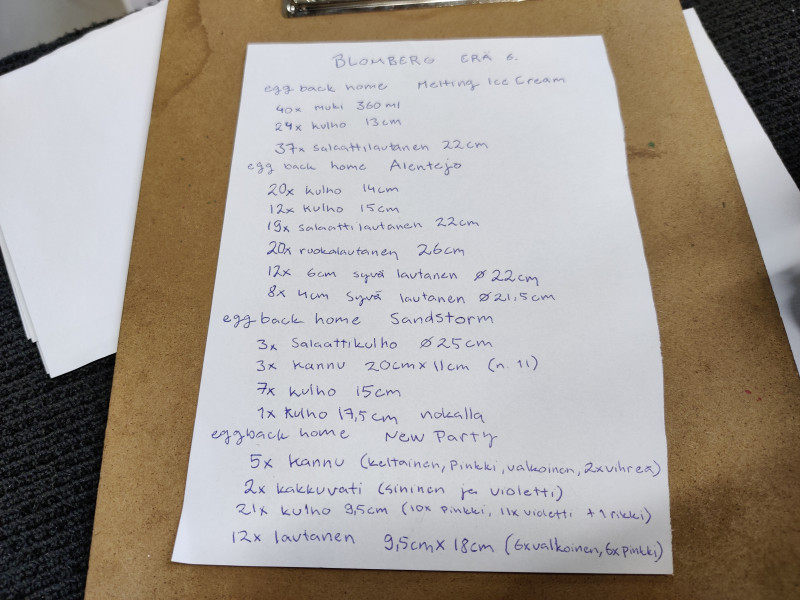 BLOMBERG ERÄ 6.
egg back home Melting Ice Cream
40x muki 360 ml
24x kulho 13cm
37x salaattilautanen 22cm
egg back home Alentejo
20x kulho 14cm
12x kulho 15cm
19x salaattilautanen 22cm
20x ruokalautanen 26cm
12x 6cm syvä lautanen ø 22cm
8x 4cm syvä lautanen ø 21,5cm
egg back home Sandstorm
3x salaattikulho ø 25cm
3x kannu 20cm x 11cm (n. 1l)
7x kulho 15cm
1x kulho 17,5cm nokalla
eggback home New Party
5x kannu (keltainen, pinkki, valkoinen, 2xvihreä)
2x kakkuvati (sininen ja violetti)
21x kulho 9,5cm (10x pinkki, 11x violetti + 1 rikki)
12x lautanen 9,5cm x 18cm (6xvalkoinen, 6xpinkki)